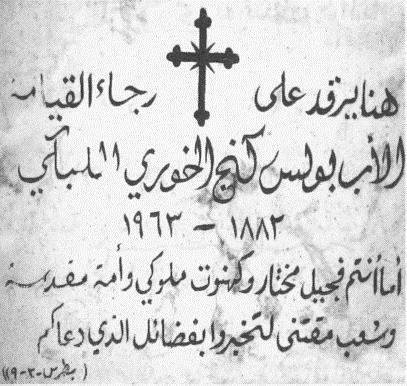 هنا يرقد على رجاء القيامة
الأب بولس كنج الخوري الملباكي
١٨٨٢ – ١٩٦٣
أما أنتم فجيل مختار وكهنوت ملوكي وأمة مقدسة
وشعب مقتنى لتخبروا بفضائل الذي دعاكم
( بطرس-٢-٩)